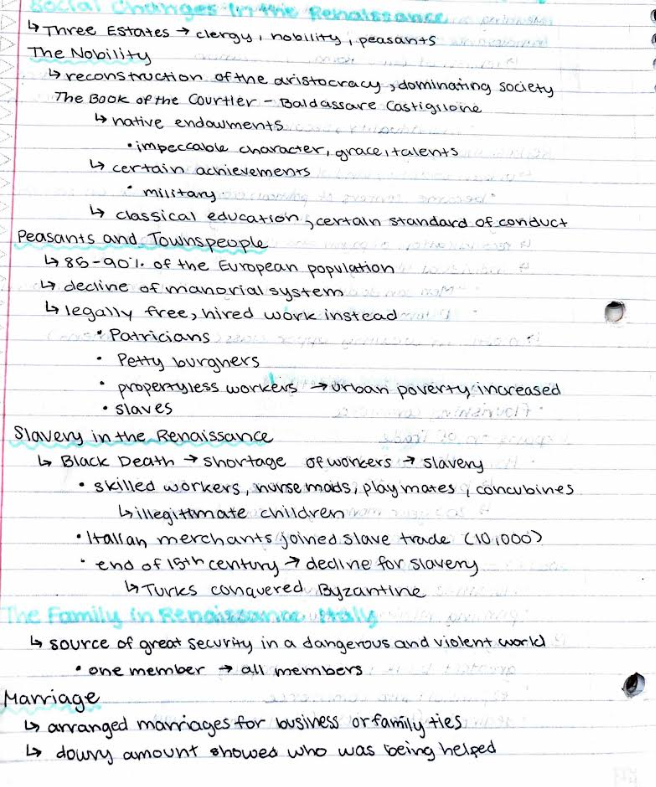 Social Changes in the Renaissance
↳ Three Estates → clergy, nobility, peasants
The Nobility
↳ reconstruction of the aristocracy, dominating society
The Book of the Courtier - Baldassare Castiglione
↳ native endowments
• impeccable character, grace, talents
↳ certain achievements
• military
↳ classical education, certain standard of conduct
Peasants and Townspeople
↳ 85-90% of the European population
↳ decline of manorial system
↳ legally free, hired work instead
• Patricians
• Petty burghers
• propertyless workers → urban poverty increased
• slaves
Slavery in the Renaissance
↳ Black Death → shortage of workers → slavery
• skilled workers, nurse maids, playmates, concubines
↳ illegitimate children
• Italian merchants joined slave trade (10,000)
• end of 15th century → decline for slavery
↳ Turks conquered Byzantine
The Family in Renaissance Italy
↳ source of great security in a dangerous and violent world
• one member → all members
Marriage
↳ arranged marriages for business or family ties
↳ dowry amount showed who was being helped